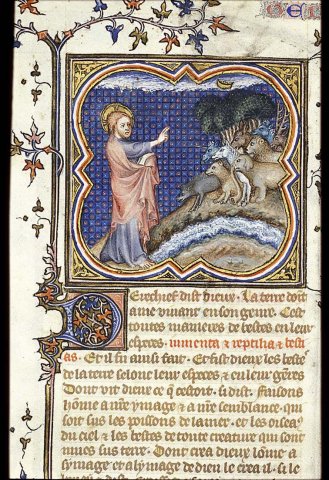 Derechief dist dieux. La terre doit
ame vivant en son genre. Cest
toutes manieres de bestes en leur
especes. iumenta et reptilia et besti
as. Et il fu ainsi fait. Et fist dieux les bestes
de la terre selonc leur especes et en leur genres
Dont vit dieux ce q̃ cestoit. si dist. ffaisons
home a nr̃e ymage et a nr̃e semblance. qui
soit sus les poissons de la mer. et les oiseaꝰ
du ciel et les bestes de toute creature qui sont
mues sus terre. Dont crea dieux lome a
symage et a lymage de dieu le crea il. si le